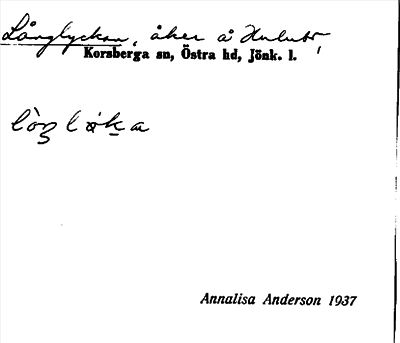 Långlyckan, åker å Hulubr,
Korsberga sn, Östra hd, Jönk. l.
Annalisa Anderson 1937